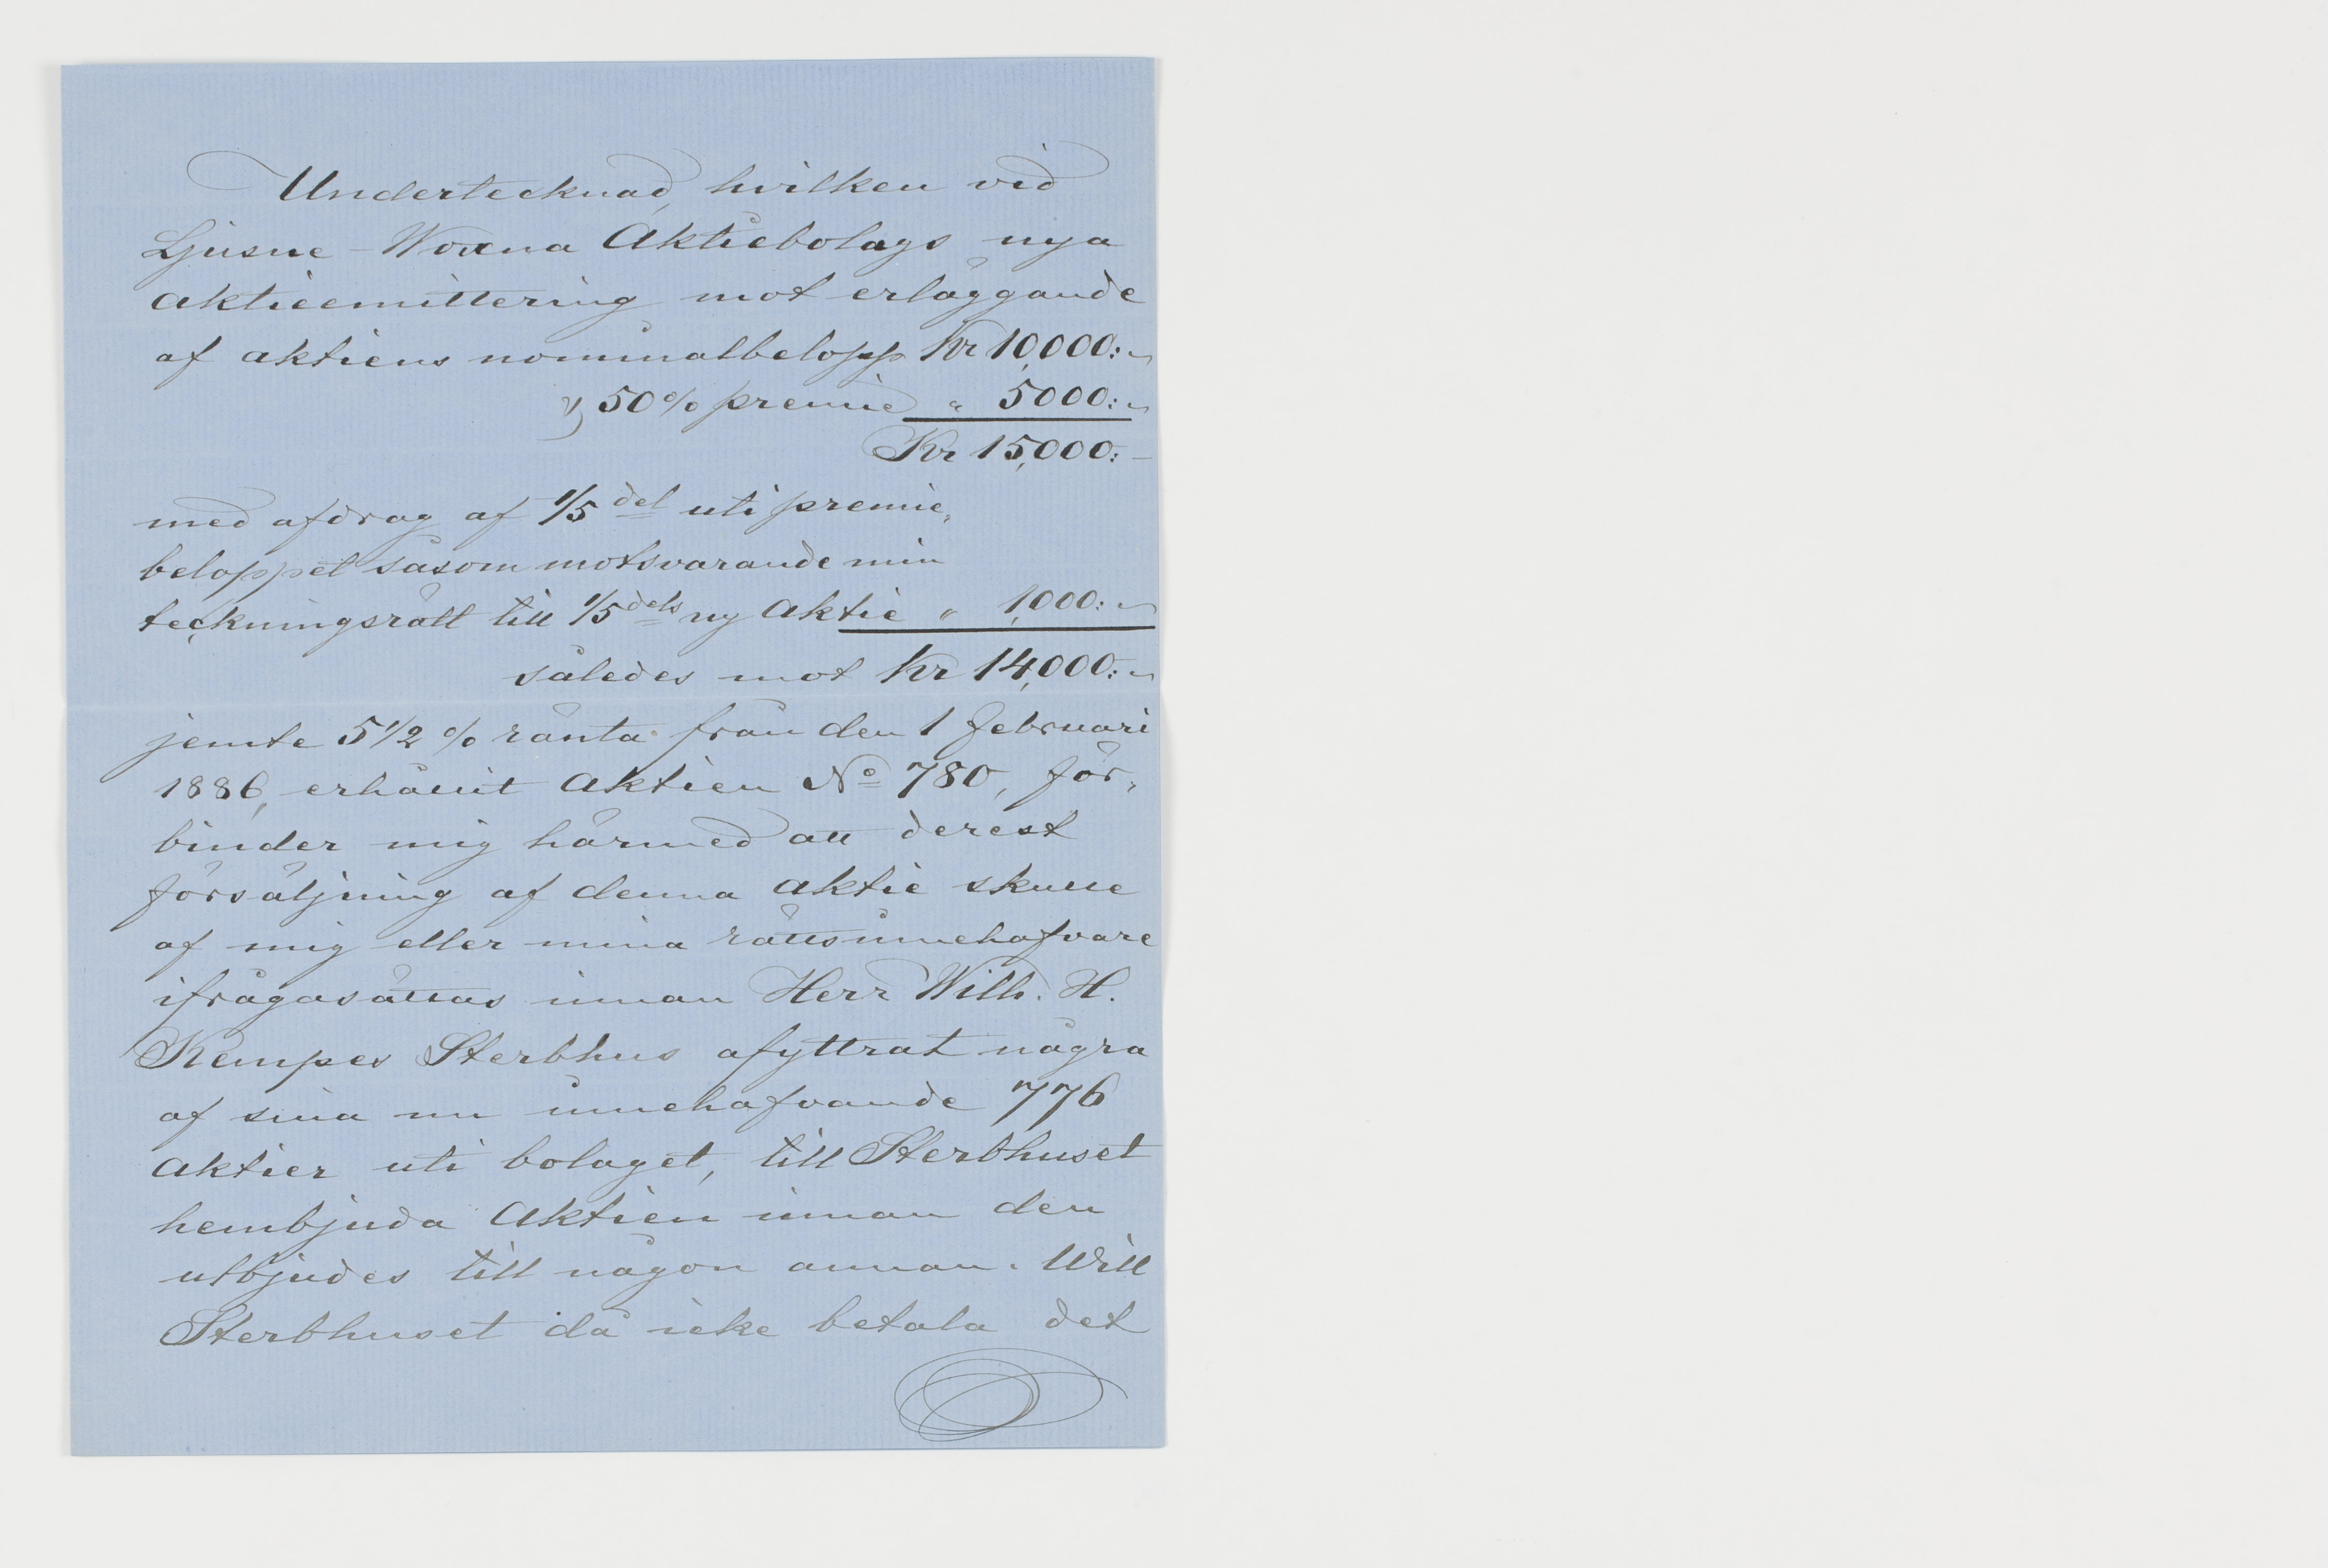 Undertecknad, hvilken vid
Ljusne-Woxna Aktiebolags nya
aktieemittering mot erläggande
af aktiens nominalbelopp Kr 10,000:-
50% premie " 5000:-
Kr 15,000:-
med afdrag af 1/5 del uti premie-
beloppet såsom motsvarande min
teckningsrätt till 1/5 dels ny Aktie " 1,000:-
således mot Kr 14,000:-
jemte 5 1/2 % ränta från den 1 Februari
1886, erhållit Aktien No 780, för-
binder mig härmed att derest
försäljning af denna Aktie skulle
af mig eller mina rättsinnehafvare
ifrågasättas innan Herr Wilh. H.
Kempes Sterbhus afyttrat några
af sina nu innehafvande 776
Aktier uti bolaget, till Sterbhuset
hembjuda Aktien innan den
utbjudes till någon annan. Will
Sterbhuset då icke betala det